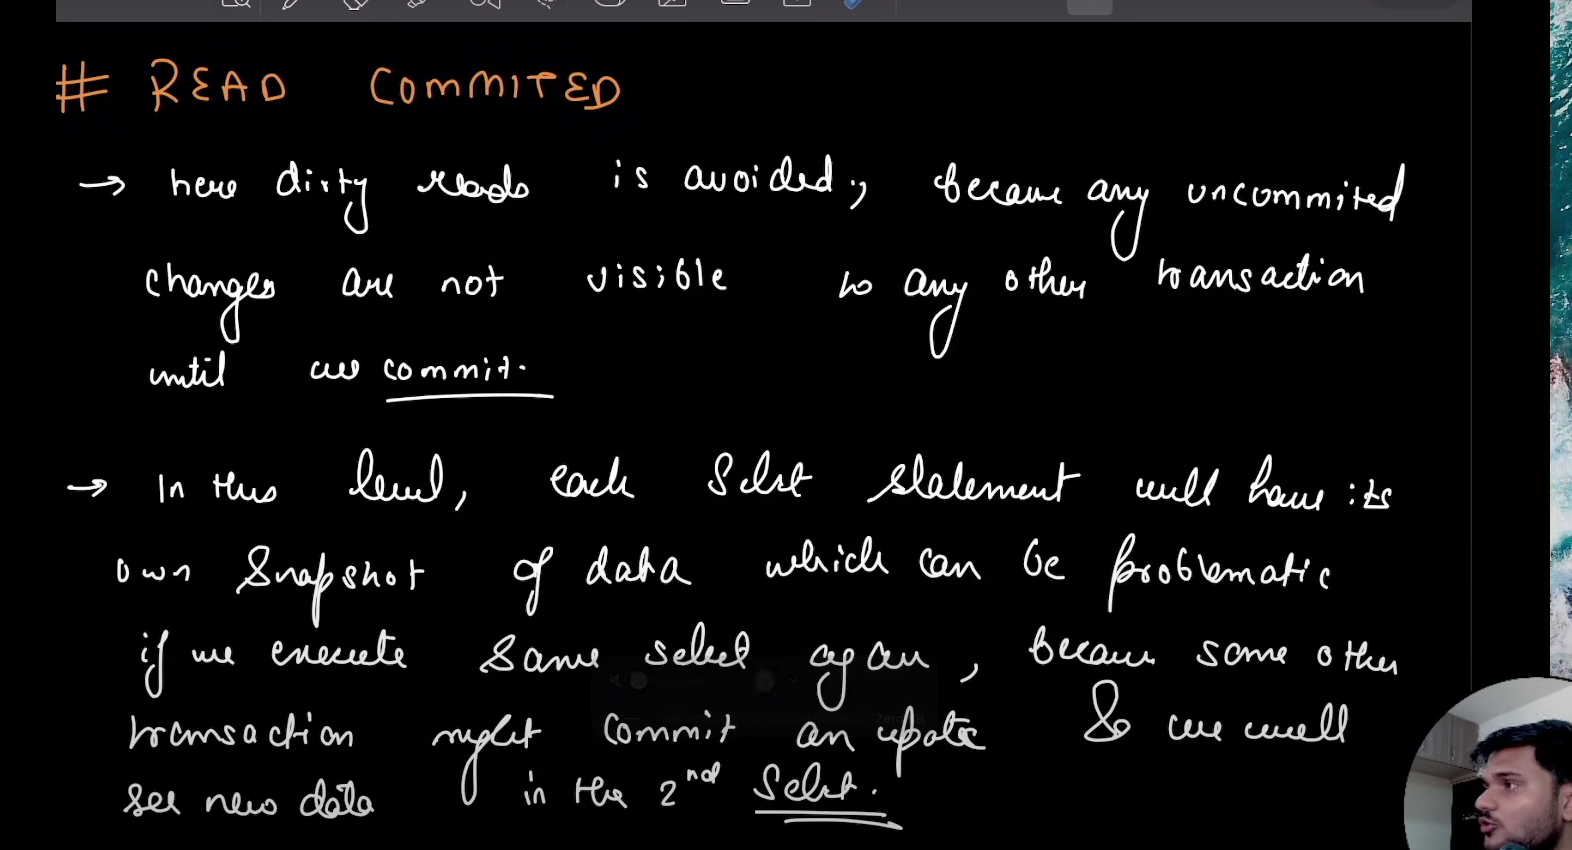 # READ COMMITED
→ here dirty reads is avoided, because any uncommited
changes are not visible to any other transaction
until we commit.
→ In this level, each Select statement will have its
own Snapshot of data which can be problematic
if we execute same select again, because some other
transaction might commit an update & we will
see new data in the 2nd Select.